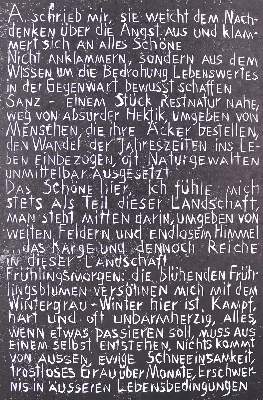 A. schrieb mir, sie weicht dem Nach-
denken über die Angst aus und klam-
mert sich an alles Schöne
Nicht anklammern, sondern aus dem
Wissen um die Bedrohung Lebenswertes
in der Gegenwart bewusst schaffen
Sanz - einem Stück Restnatur nahe,
weg von absurder Hektik, umgeben von
Menschen, die ihre Äcker bestellen,
den Wandel der Jahreszeiten ins Le-
ben einbezogen, oft Naturgewalten
unmittelbar ausgesetzt
Das Schöne hier, ich fühle mich
stets als Teil dieser Landschaft,
man steht mitten darin, umgeben von
weiten Feldern und endlosem Himmel
... das Karge und dennoch Reiche
in dieser Landschaft
Frühlingsmorgen: die blühenden Früh-
lingsblumen versöhnen mich mit dem
Wintergrau - Winter hier ist Kampf,
hart und oft unbarmherzig, alles,
wenn etwas passieren soll, muss aus
einem selbst entstehen, nichts kommt
von aussen, ewige Schneeinsamkeit,
trostloses Grau über Monate, Erschwer-
nis in äusseren Lebensbedingungen